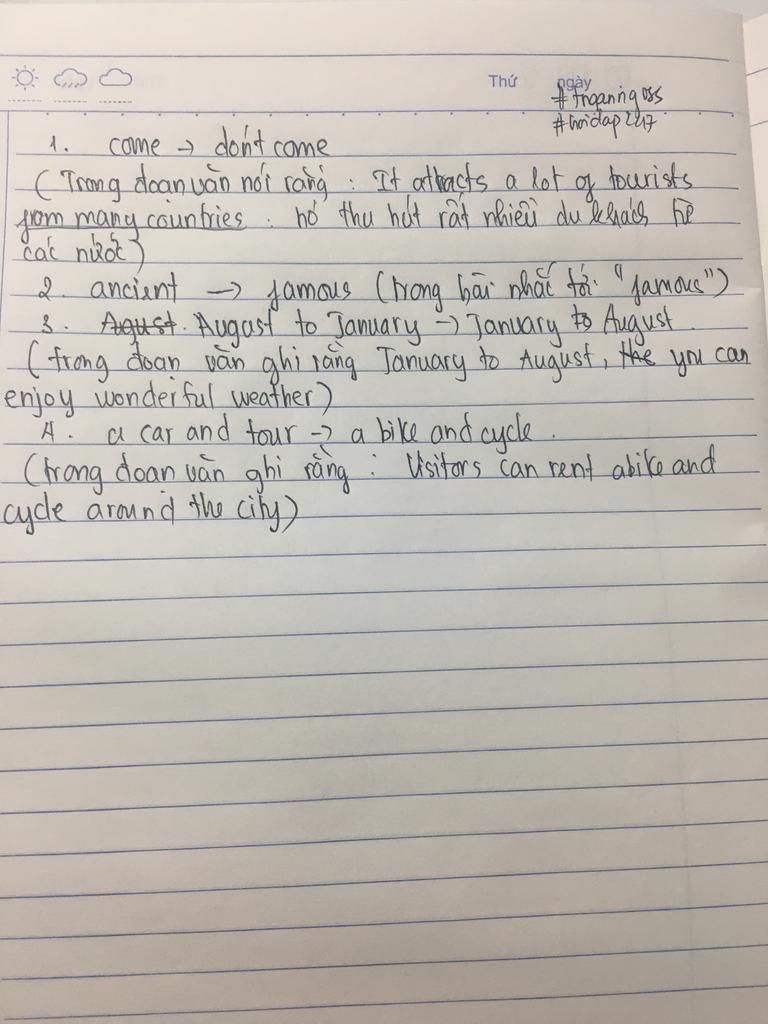 Thứ ngày
#hoidap247
1. come → don't come
(Trong đoạn văn nói rằng : It attracts a lot of tourists
from many countries : nó thu hút rất nhiều du khách từ
các nước)
2. ancient → famous (trong bài nhắc tới "famous")
3. Agust. August to January → January to August.
(trong đoạn văn ghi rằng January to August, the you can
enjoy wonderful weather)
4. a car and tour → a bike and cycle.
(trong đoạn văn ghi rằng : Visitors can rent a bike and
cycle around the city)